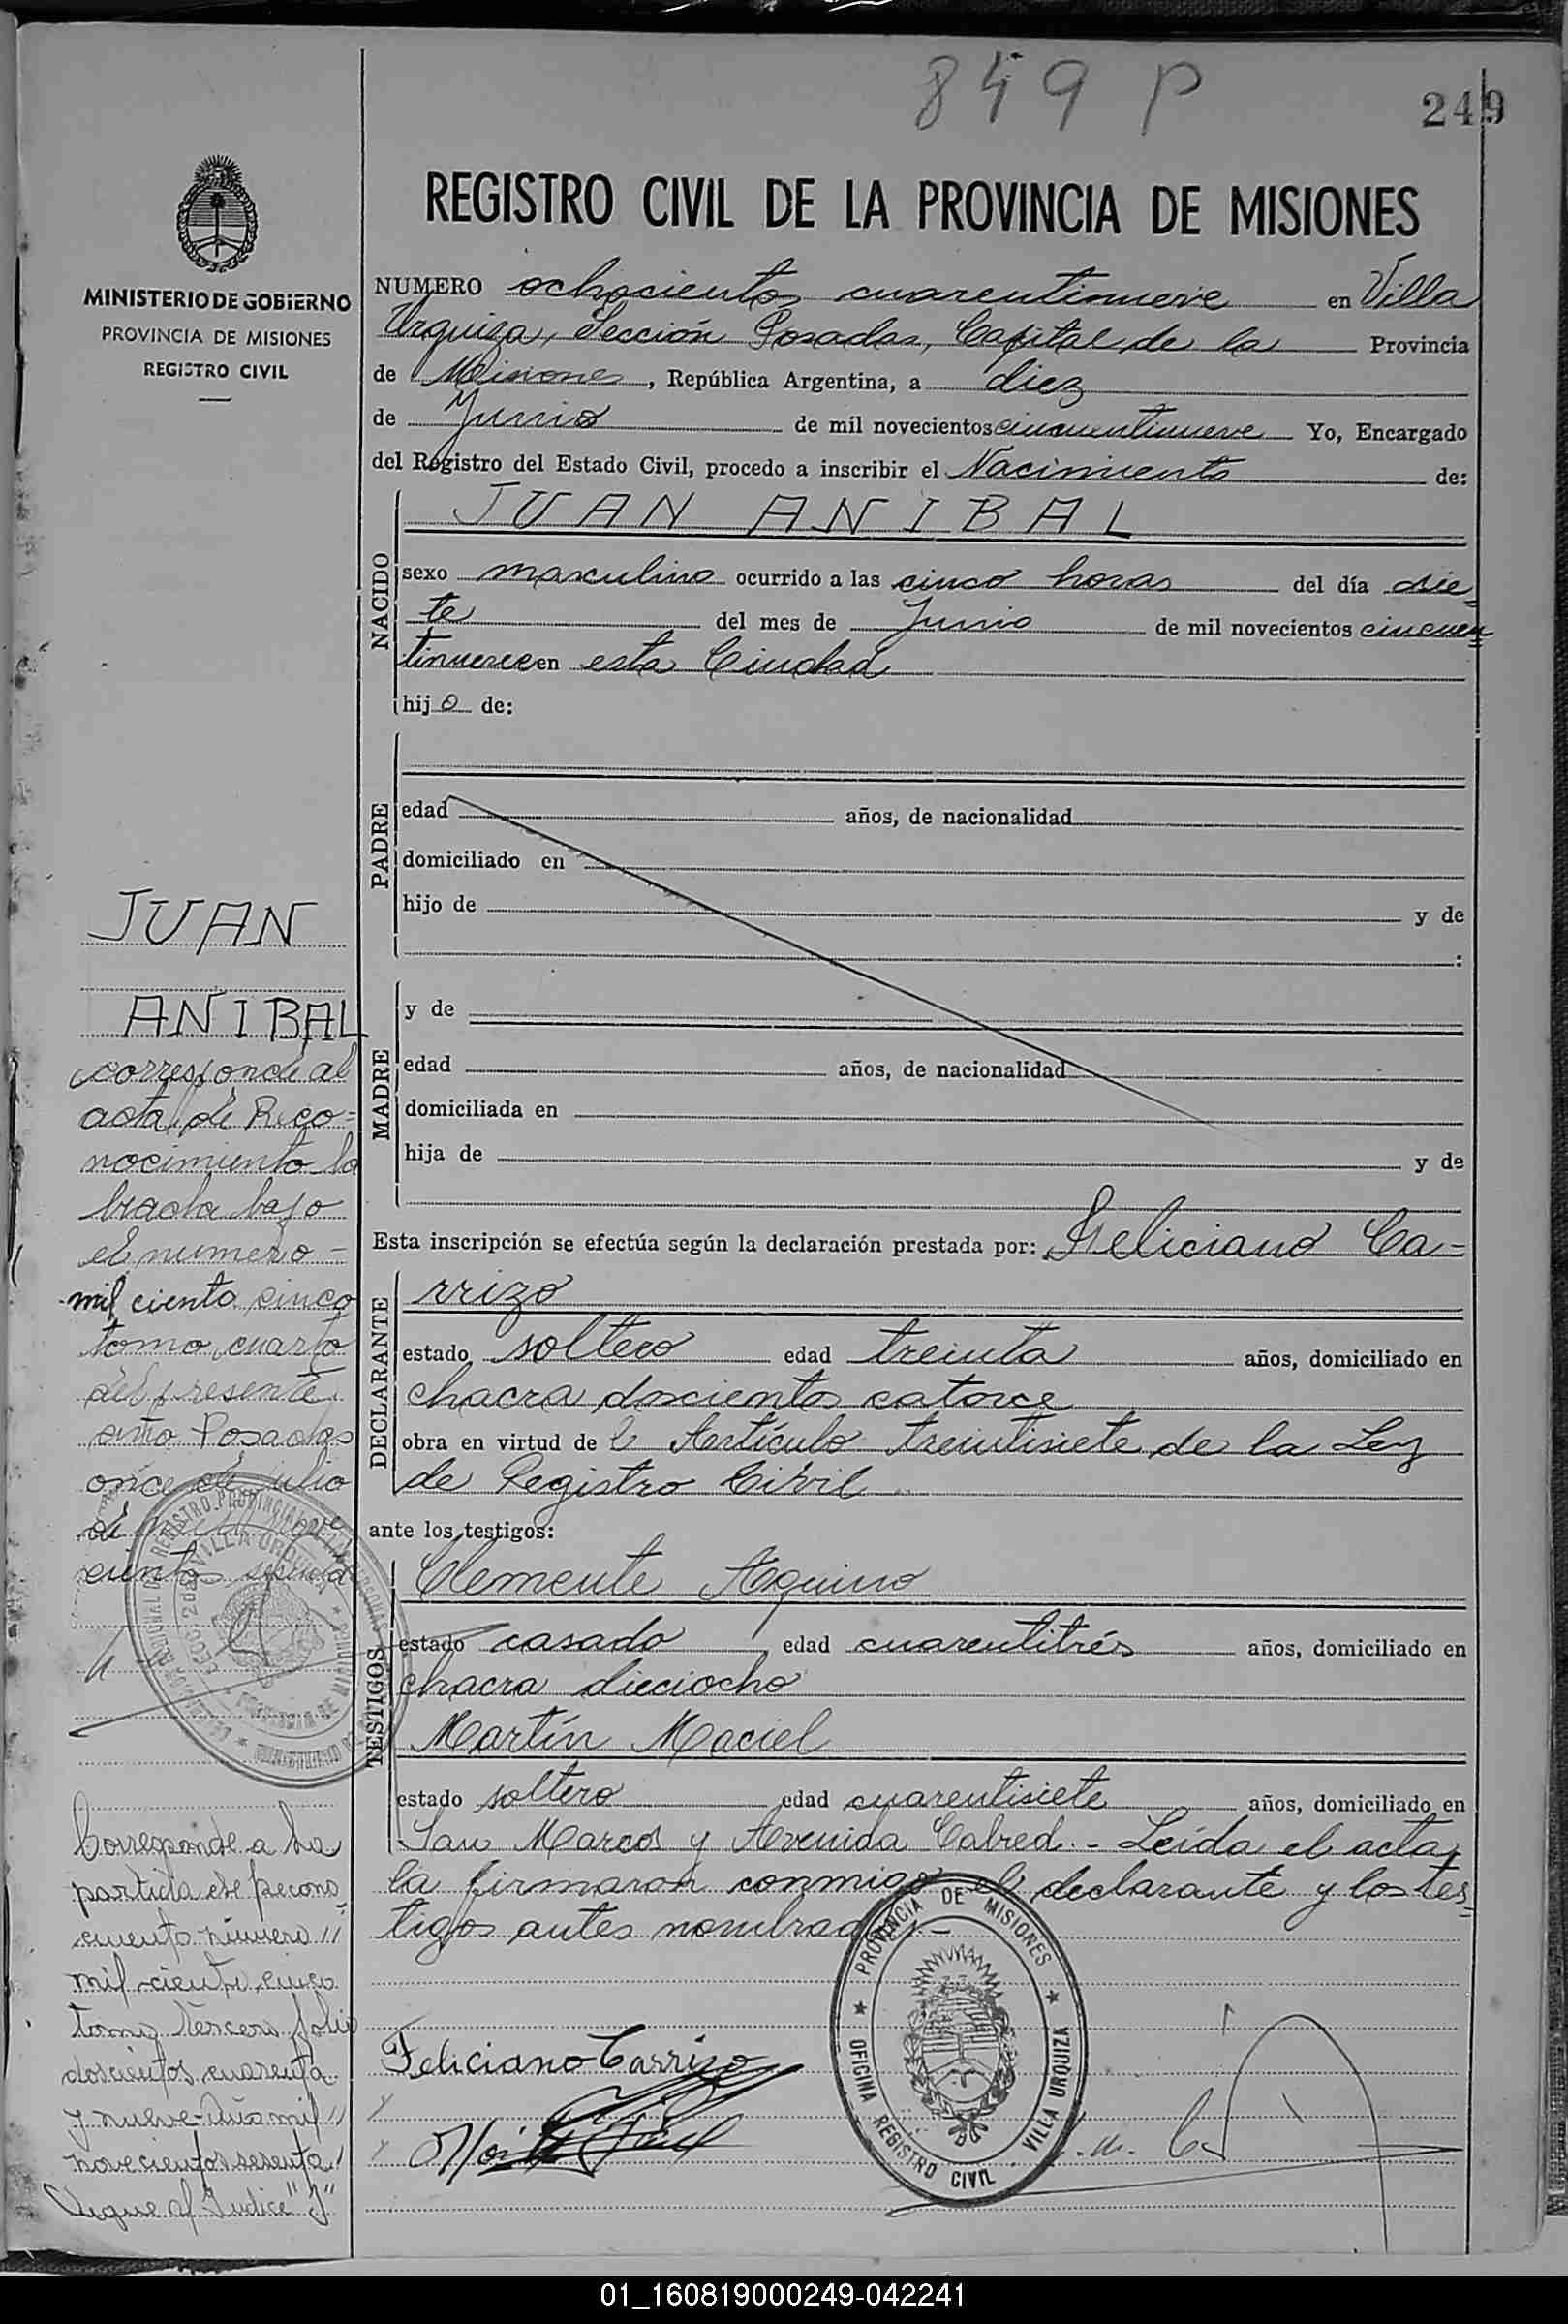 849 P
249
REGISTRO CIVIL DE LA PROVINCIA DE MISIONES
MINISTERIO DE GOBIERNO
PROVINCIA DE MISIONES
REGISTRO CIVIL
NUMERO ochocientos cuarentinueve en Villa
Urquiza, Sección Posadas, Capital de la Provincia
de Misiones, República Argentina, a diez
de Junio de mil novecientos cincuentinueve Yo, Encargado
del Registro del Estado Civil, procedo a inscribir el Nacimiento de:
NACIDO
JUAN ANIBAL
sexo masculino ocurrido a las cinco horas del día sie-
te del mes de Junio de mil novecientos cincuen=
tinueve en esta Ciudad
hijo de:
PADRE
edad años, de nacionalidad
domiciliado en
hijo de y de
:
MADRE
y de
edad años, de nacionalidad
domiciliada en
hija de y de
Esta inscripción se efectúa según la declaración prestada por: Feliciano Ca=
DECLARANTE
rrizo
estado soltero edad treinta años, domiciliado en
chacra doscientos catorce
obra en virtud del Artículo treintisiete de la Ley
de Registro Civil
ante los testigos:
TESTIGOS
Clemente Aquino
estado casado edad cuarentitrés años, domiciliado en
chacra dieciocho
Martín Maciel
estado soltero edad cuarentisiete años, domiciliado en
San Marcos y Avenida Cabred.- Leída el acta,
la firmaron conmigo el declarante y los tes=
tigos antes nombrados.-
Feliciano Carrizo
PROVINCIA DE MISIONES
OFICINA REGISTRO CIVIL VILLA URQUIZA
JUAN
ANIBAL
corresponde al
acta de Reco=
nocimiento la
brada bajo
el numero =
mil ciento cinco
tomo cuarto
del presente
año Posadas
once de julio
de mil nove
cientos sesenta
Corresponde a la
partida de recono
cimiento número //
mil ciento cinco
tomo tercero folio
doscientos cuarenta
y nueve-Año mil //
novecientos sesenta/
Sigue al Indice "J"
01_160819000249-042241